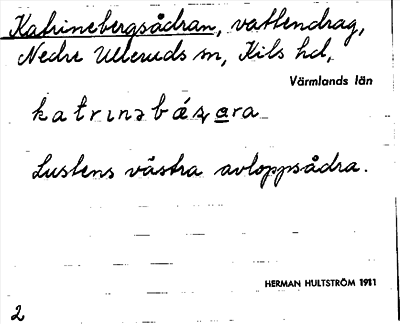 Katrinebergsådran, vattendrag,
Nedre Ulleruds sn, Kils hd,
Värmlands län
Lustens västra avloppsådra.
HERMAN HULTSTRÖM 1911
2